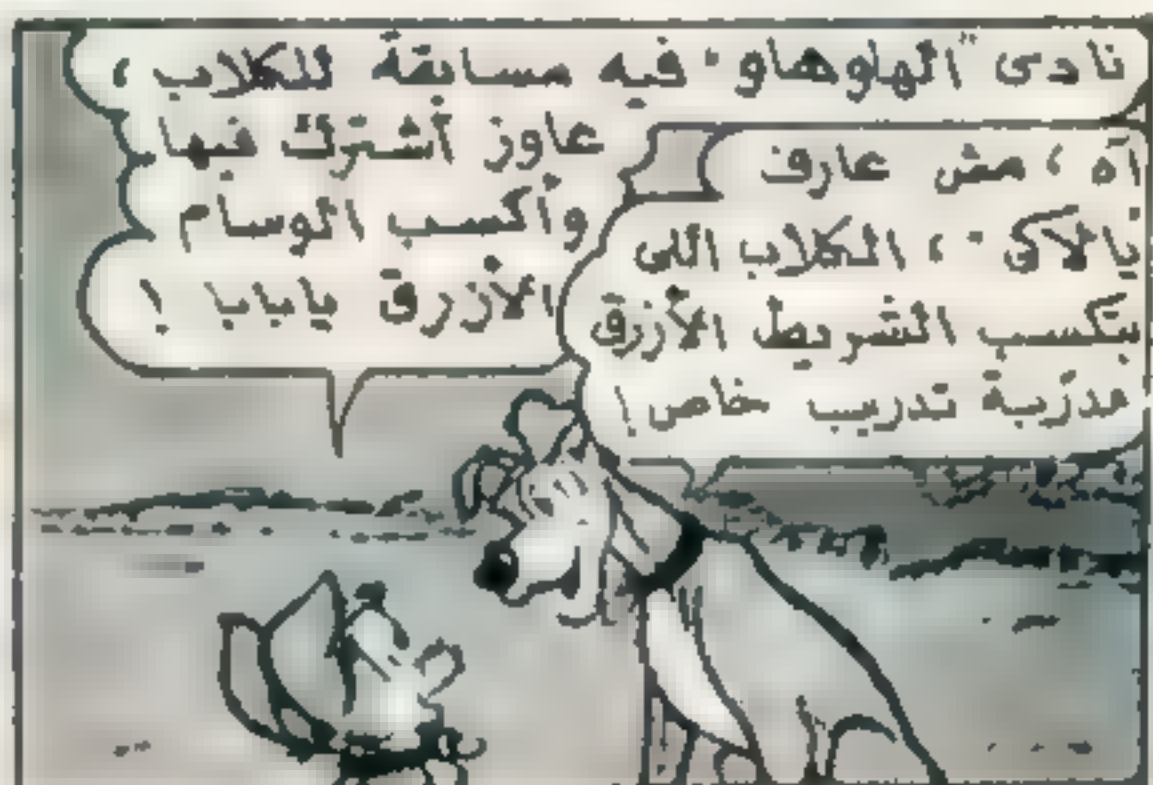 نادى "الهاوهاو" فيه مسابقة للكلاب ،
عاوز أشترك فيها
وأكسب الوسام
الأزرق يابابا !
آه ، مش عارف
يالاكى ، الكلاب اللى
بتكسب الشريط الأزرق
مدرّبة تدريب خاص !